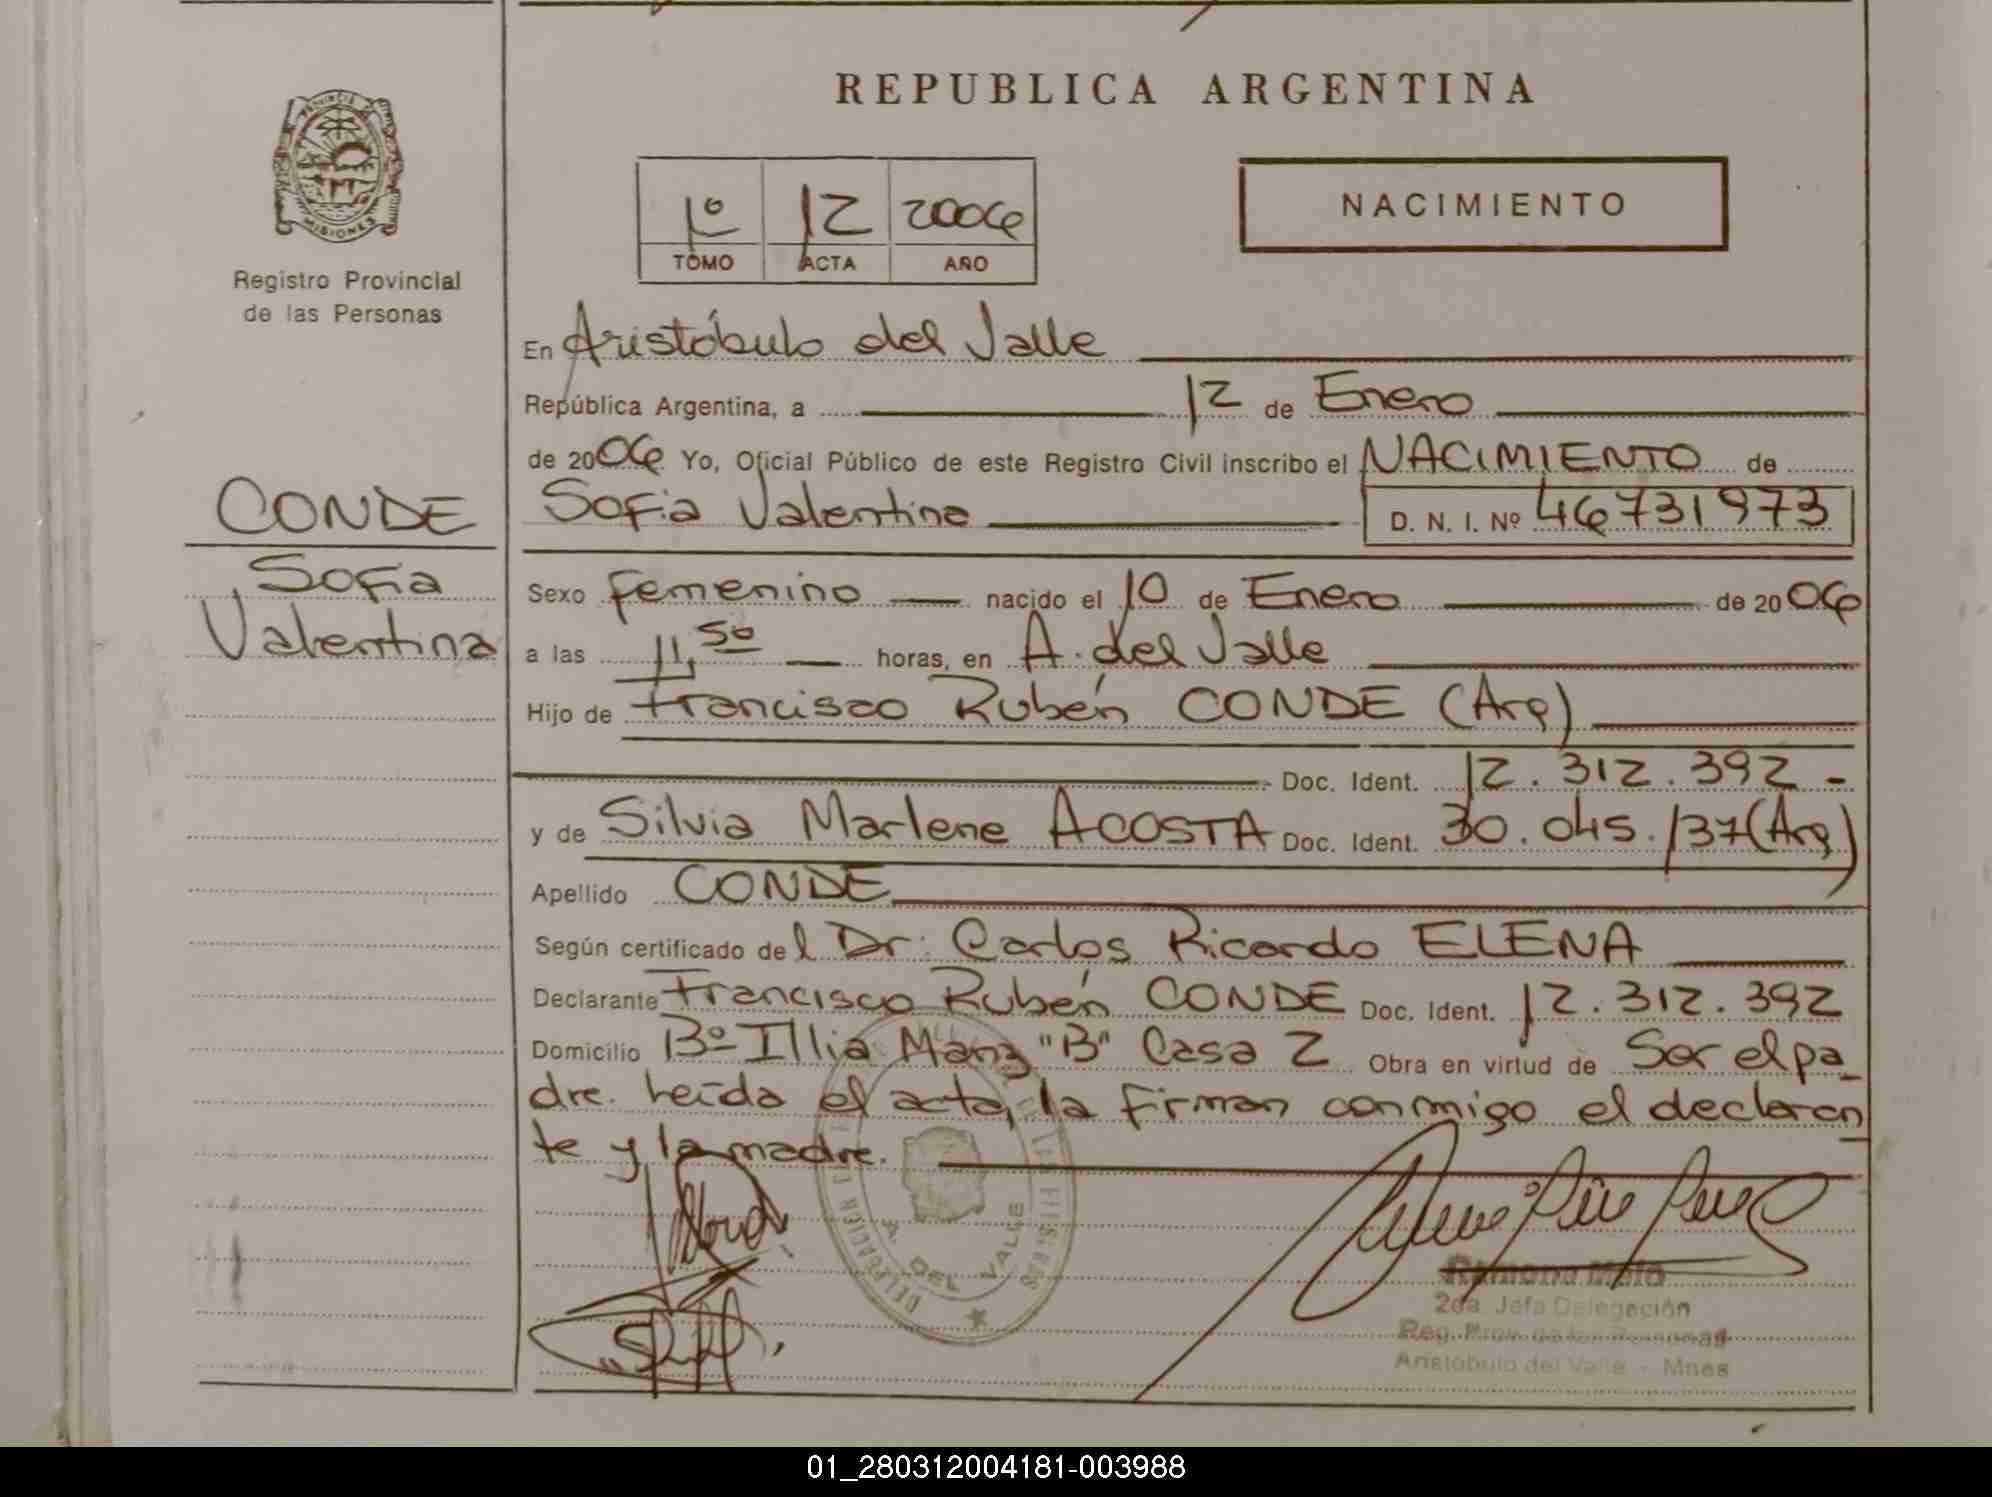 REPUBLICA ARGENTINA
PROVINCIA
MISIONES
Registro Provincial
de las Personas
1º 12 2006
TOMO ACTA AÑO
NACIMIENTO
En Aristóbulo del Valle
República Argentina, a 12 de Enero
de 2006 Yo, Oficial Público de este Registro Civil inscribo el NACIMIENTO de
CONDE
Sofia
Valentina
Sofia Valentina D. N. I. Nº 46731973
Sexo femenino nacido el 10 de Enero de 2006
a las 11,50 horas, en A. del Valle
Hijo de Francisco Rubén CONDE (Arg)
Doc. Ident. 12.312.392-
y de Silvia Marlene ACOSTA Doc. Ident. 30.045.137(Arg)
Apellido CONDE
Según certificado del Dr. Carlos Ricardo ELENA
Declarante Francisco Rubén CONDE Doc. Ident. 12.312.392
Domicilio Bº Illia Manz "B" Casa 2 Obra en virtud de Ser el pa_
dre. Leída el acta, la firman conmigo el declaran
te y la madre.
A. DEL VALLE
Ramona Melo
2da. Jefa Delegación
Reg. Prov. de las Personas
Aristóbulo del Valle - Mnes
01_280312004181-003988